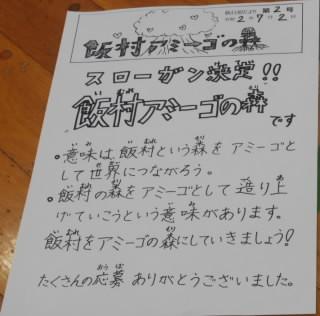 執行部だより 第2号
令和2年7月2日
飯村アミーゴの森
スローガン決定!!
飯村アミーゴの森
です
。意味は飯村という森をアミーゴと
して世界につながろう。
。飯村の森をアミーゴとして造り上
げていこうという意味があります。
飯村をアミーゴの森にしていきましょう!
たくさんの応募 ありがとうございました。